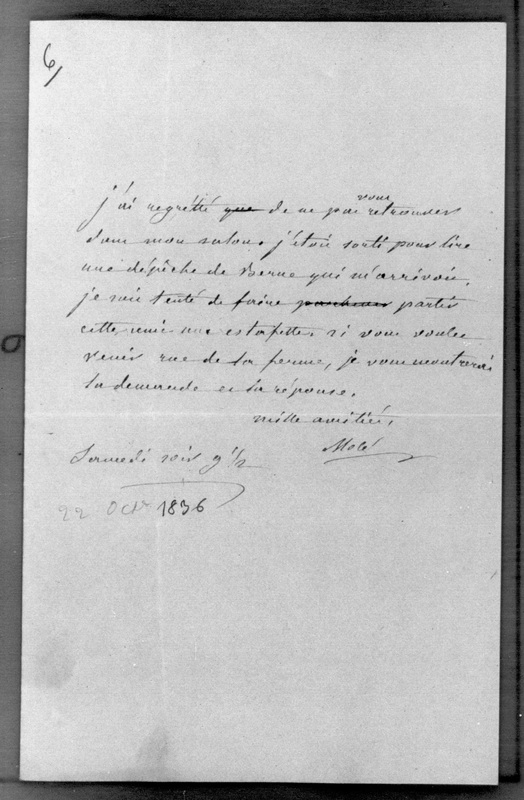 6/
j'ai regretté que de ne pas vous retrouver
dans mon salon. j'étois sorti pour lire
une dépêche de Berne qui m'arrivoit.
je suis tenté de faire partir
cette nuit une estafette. si vous voulez
venir rue de la ferme, je vous montrerai
la demande et la réponse.
mille amitiés,
Molé
Samedi soir 9 1/2
22 Oct 1836